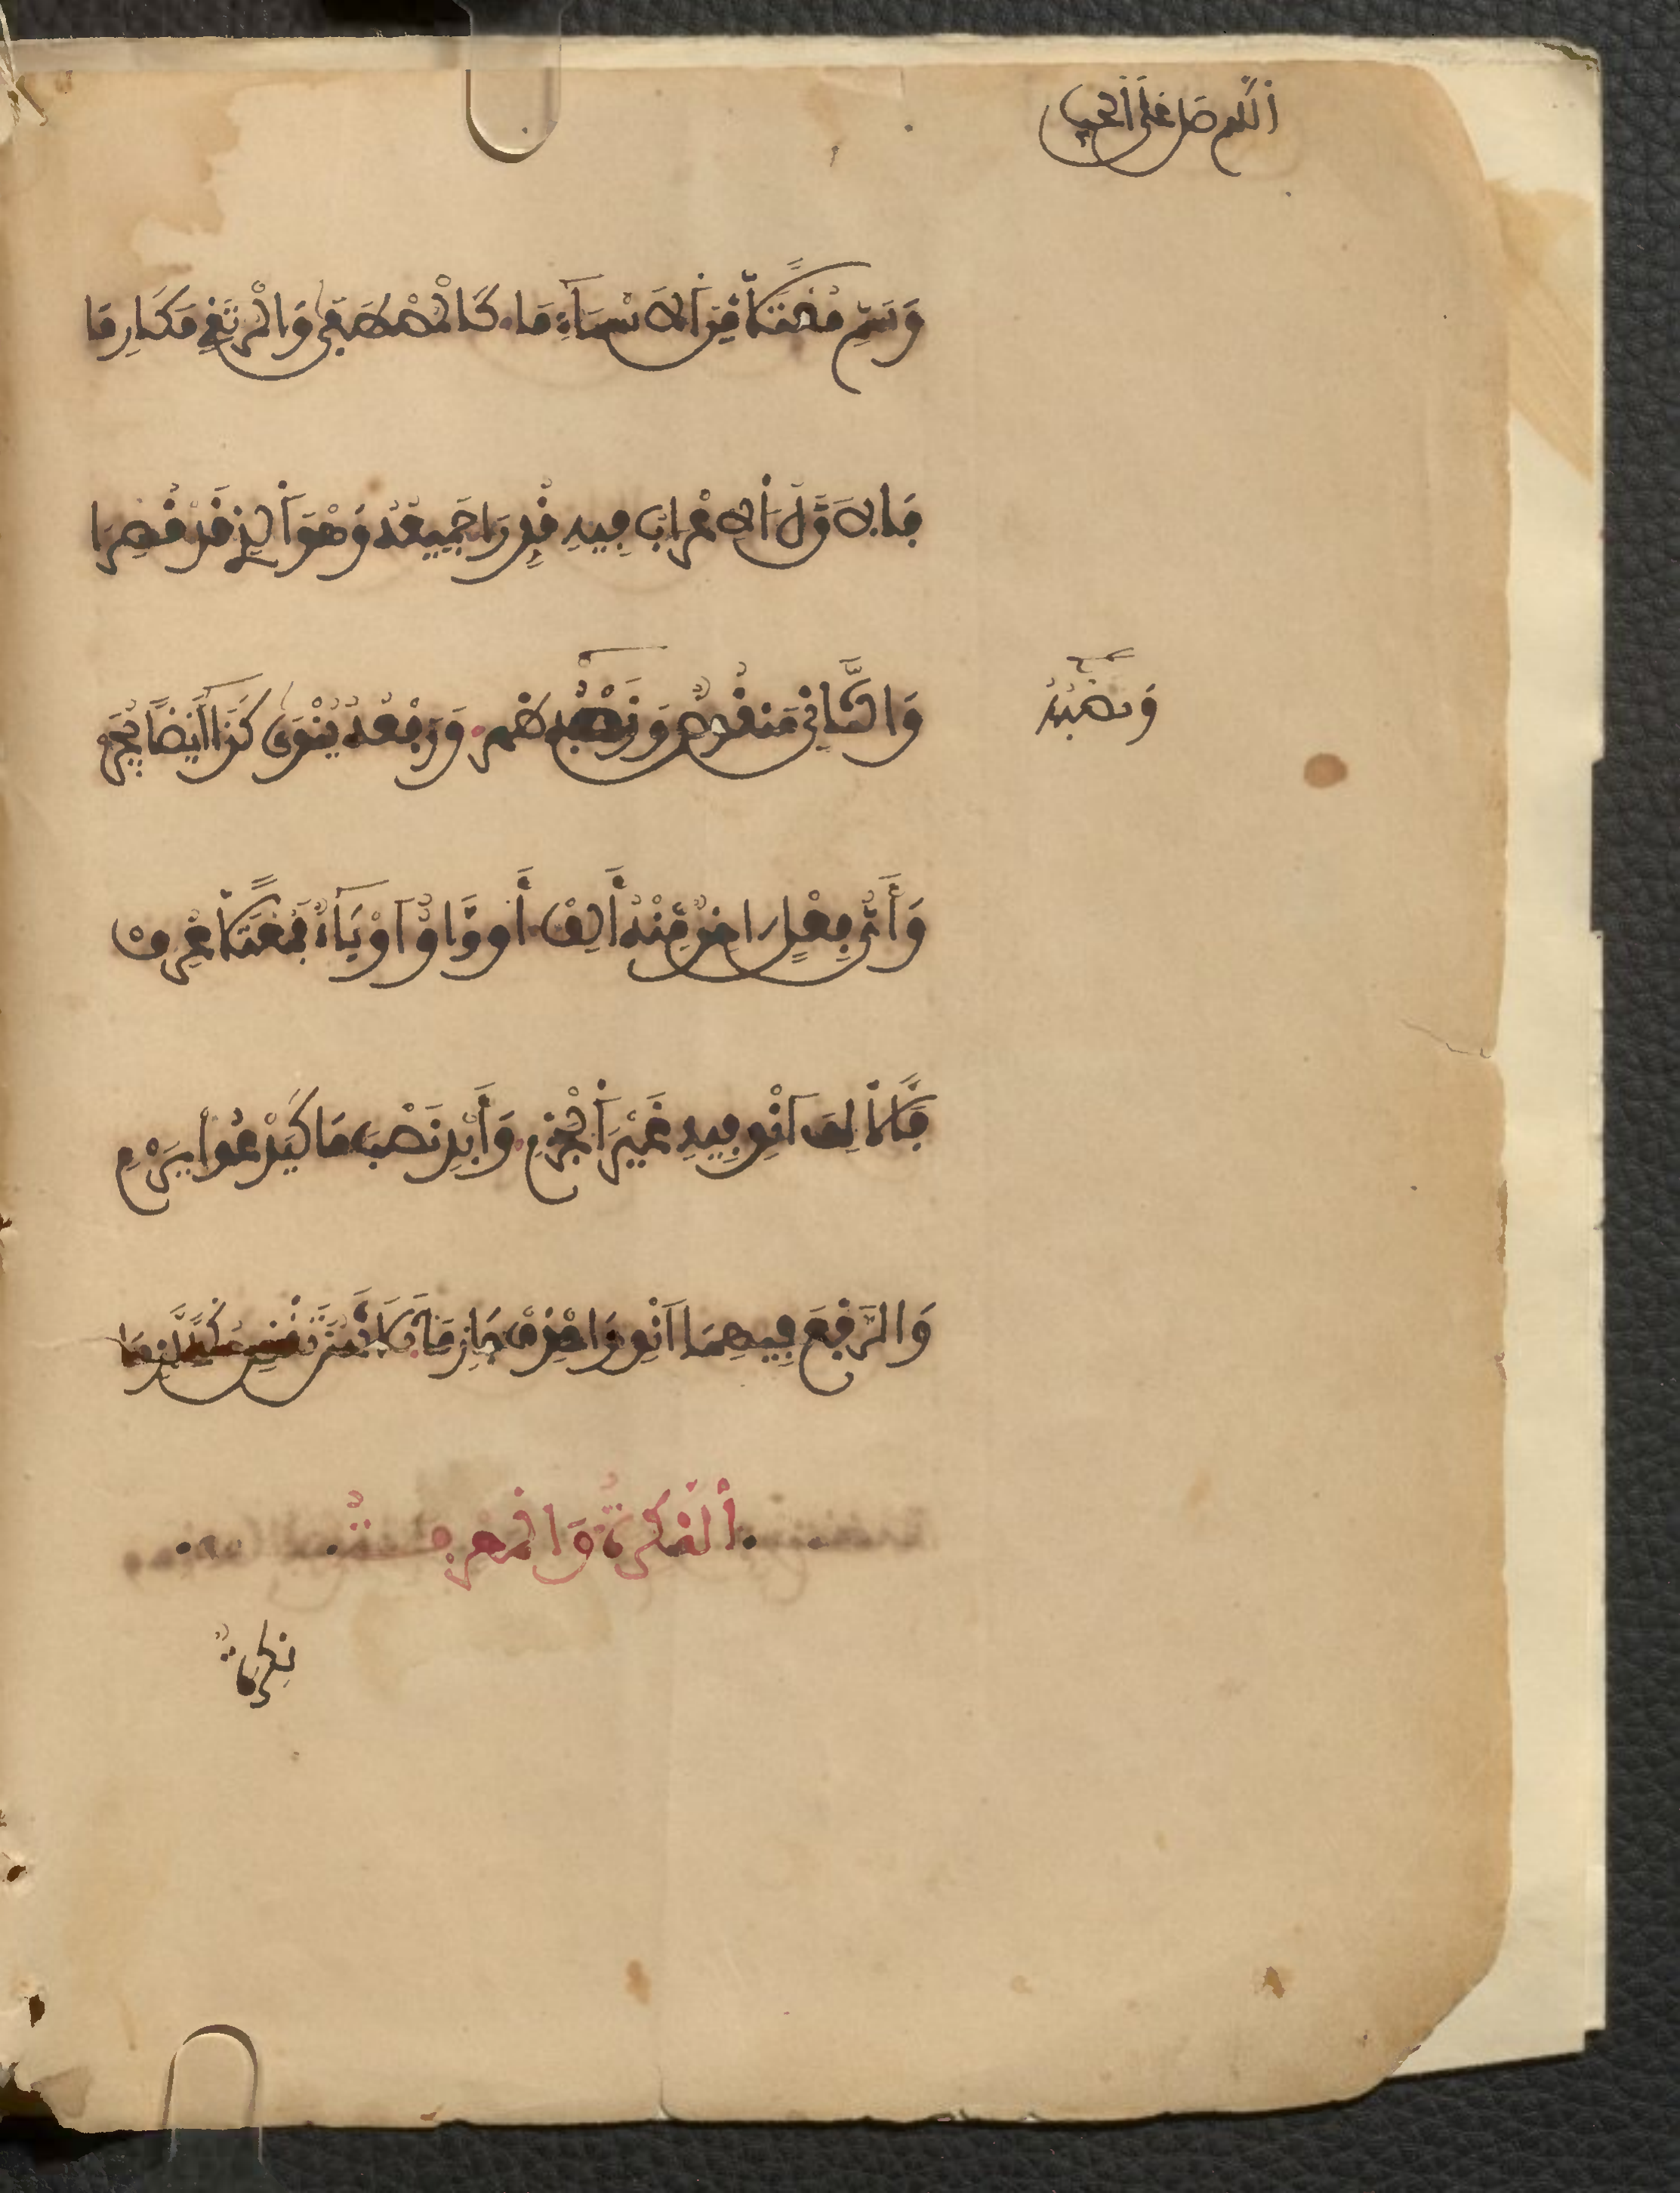 اللهم صل على الحبيب
وَسَمِّ مُعْتَلًّا مِّنَ الَاسْمَآءِ مَا كَالْمُصْطَفَى وَالْمُرْتَقِي مَكَارِمَا
فَالَاوَّلُ الِاعْرَابُ فِيهِ قُدِّرَا جَمِيعُهُ وَهْوَ الَّذِي قَدْ قُصِرَا
وَالثَّانِي مَنْقُوصٌ وَنَصْبُهُ ظَهَرْ وَرَفْعُهُ يُنْوَى كَذَا أَيْضًا يُجَرْ
وَنَصْبُهُ
وَأَيُّ فِعْلٍ اخِرٌ مِّنْهُ أَلِفْ أَو وَّاوٌ اَوْ يَآءٌ فَمُعْتَلًّا عُرِفْ
فَالَالِفَ انْوِ فِيهِ غَيْرَ الْجَزْمِ وَأَبْدِ نَصْبَ مَا كَيَدْعُوا يَرْمِ
وَالرَّفْعَ فِيهِمَا انْوِ وَاحْذِفْ جَازِمَا ثَلَاثَهُنَّ تَقْضِ حُكْمًا لَّازِمَا
النكرةُ وَالمعرفةُ
نكرةٌ